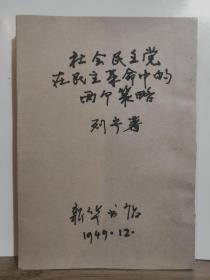 社会民主党
在民主革命中的
两个策略
列宁著
新华书店
1949.12.